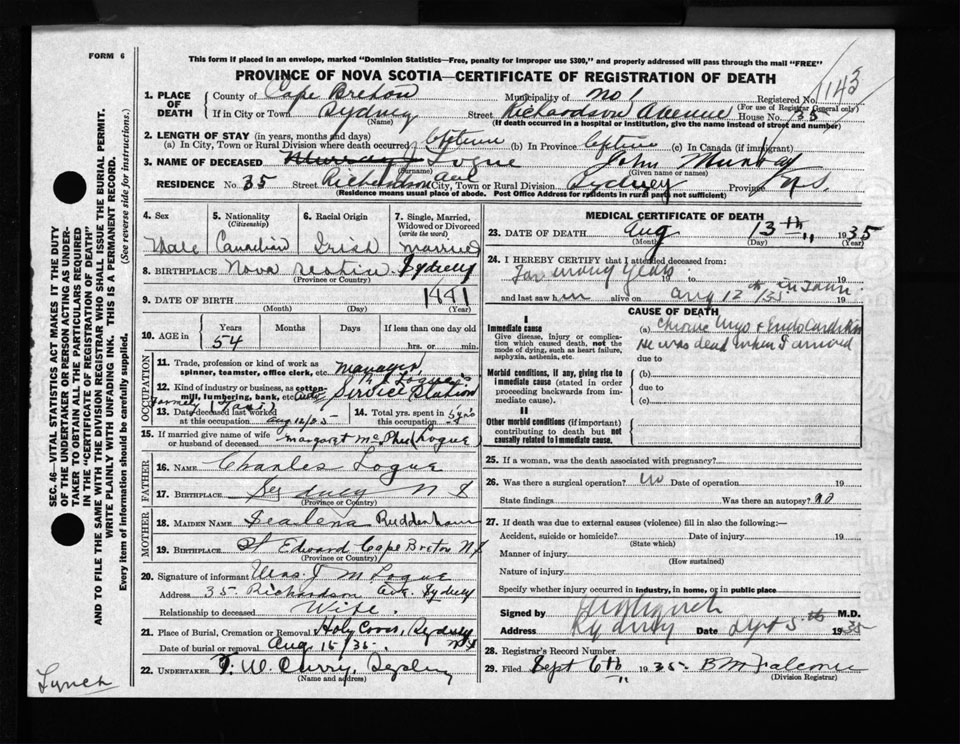 FORM 6
This form if placed in an envelope, marked "Dominion Statistics—Free, penalty for improper use $300," and properly addressed will pass through the mail "FREE"
PROVINCE OF NOVA SCOTIA—CERTIFICATE OF REGISTRATION OF DEATH
1143
1. PLACE OF DEATH
County of Cape Breton Municipality of No 1 Registered No.
(For use of Registrar General only)
If in City or Town Sydney Street Richardson Avenue House No. 35
(Name) (If death occurred in a hospital or institution, give the name instead of street and number)
2. LENGTH OF STAY (in years, months and days)
(a) In City, Town or Rural Division where death occurred Lifetime (b) In Province Lifetime (c) In Canada (if immigrant)
3. NAME OF DECEASED Murray J Logue John Murray
(Surname) (Given name or names)
RESIDENCE No. 35 Street Richardson Ave City, Town or Rural Division Sydney Province N.S.
(Residence means usual place of abode. Post Office Address for residents in rural parts not sufficient)
4. Sex
Male
5. Nationality
(Citizenship)
Canadian
6. Racial Origin
Irish
7. Single, Married, Widowed or Divorced
(write the word)
Married
8. BIRTHPLACE Nova Scotia. Sydney
(Province or Country)
9. DATE OF BIRTH 1881
(Month) (Day) (Year)
10. AGE in
Years Months Days If less than one day old
54 hrs. or min.
OCCUPATION
11. Trade, profession or kind of work as spinner, teamster, office clerk, etc. Manager
12. Kind of industry or business, as cotton-mill, lumbering, bank, etc. Service Station
13. Date deceased last worked at this occupation Aug 12/35
14. Total yrs. spent in this occupation
15. If married give name of wife or husband of deceased Margaret McPhee Logue
FATHER
16. NAME Charles Logue
17. BIRTHPLACE Sydney N S
(Province or Country)
MOTHER
18. MAIDEN NAME Ruddenham
19. BIRTHPLACE Pt Edward Cape Breton N.S
(Province or Country)
20. Signature of informant Mrs. J M Logue
Address 35. Richardson Ave. Sydney
Relationship to deceased Wife.
21. Place of Burial, Cremation or Removal Holy Cross, Sydney NS
Date of burial or removal Aug 15/35.
22. UNDERTAKER T. W. Curry, Sydney
(Name and address)
MEDICAL CERTIFICATE OF DEATH
23. DATE OF DEATH Aug 13th 1935
(Month) (Day) (Year)
24. I HEREBY CERTIFY that I attended deceased from:
For many years 19 to 19
and last saw him alive on Aug 12th 35 19
CAUSE OF DEATH
I
Immediate cause
Give disease, injury or complication which caused death, not the mode of dying, such as heart failure, asphyxia, asthenia, etc.
(a) Chronic Myo & Endo Carditis
He was dead when I arrived
due to
Morbid conditions, if any, giving rise to immediate cause (stated in order proceeding backwards from immediate cause).
(b)
due to
(c)
II
Other morbid conditions (if important) contributing to death but not causally related to immediate cause.
25. If a woman, was the death associated with pregnancy?
26. Was there a surgical operation? no Date of operation 19
State findings Was there an autopsy? no
27. If death was due to external causes (violence) fill in also the following:—
Accident, suicide or homicide? Date of injury 19
(State which)
Manner of injury
(How sustained)
Nature of injury
Specify whether injury occurred in industry, in home, or in public place
Signed by Lynch M.D.
Address Sydney Date Sept 5th 1935
28. Registrar's Record Number
29. Filed Sept 6th 1935 B M Falconer
(Division Registrar)
SEC. 46—VITAL STATISTICS ACT MAKES IT THE DUTY OF THE UNDERTAKER OR PERSON ACTING AS UNDERTAKER TO OBTAIN ALL THE PARTICULARS REQUIRED IN THE "CERTIFICATE OF REGISTRATION OF DEATH" AND TO FILE THE SAME WITH THE DIVISION REGISTRAR WHO SHALL ISSUE THE BURIAL PERMIT.
WRITE PLAINLY WITH UNFADING INK. THIS IS A PERMANENT RECORD.
Every item of information should be carefully supplied. (See reverse side for instructions.)
Lynch